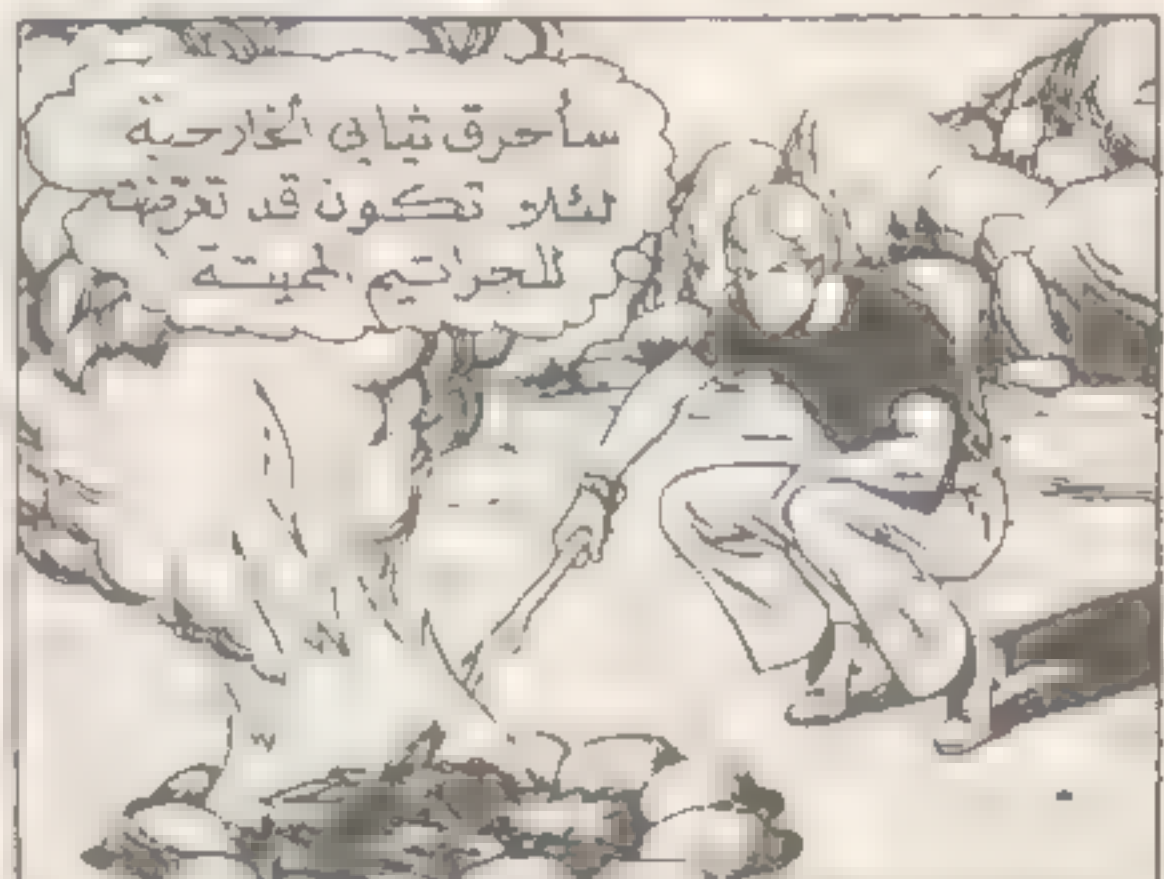 سأحرق ثيابي الخارجية
لئلا تكون قد تعرضت
للجراثيم